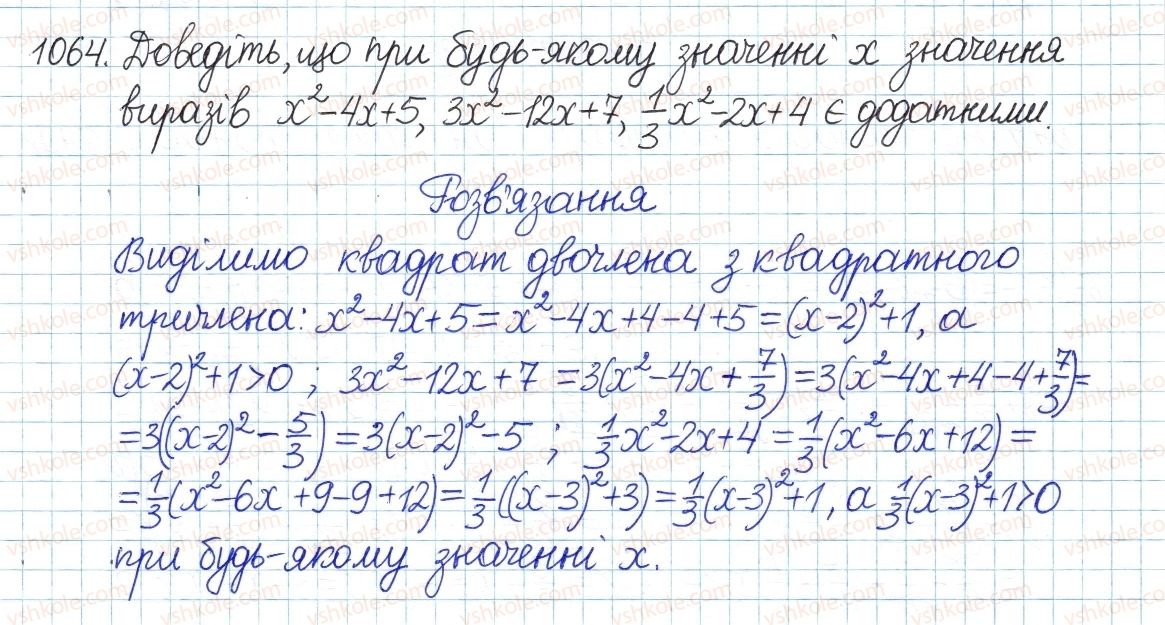 1064. Доведіть, що при будь-якому значенні x значення
виразів x² - 4x + 5, 3x² - 12x + 7, 1/3 x² - 2x + 4 є додатними.
Розв'язання
Виділимо квадрат двочлена з квадратного
тричлена: x² - 4x + 5 = x² - 4x + 4 - 4 + 5 = (x - 2)² + 1, а
(x - 2)² + 1 > 0 ; 3x² - 12x + 7 = 3(x² - 4x + 7/3) = 3(x² - 4x + 4 - 4 + 7/3) =
= 3((x - 2)² - 5/3) = 3(x - 2)² - 5 ; 1/3 x² - 2x + 4 = 1/3 (x² - 6x + 12) =
= 1/3 (x² - 6x + 9 - 9 + 12) = 1/3 ((x - 3)² + 3) = 1/3 (x - 3)² + 1, а 1/3 (x - 3)² + 1 > 0
при будь-якому значенні x.